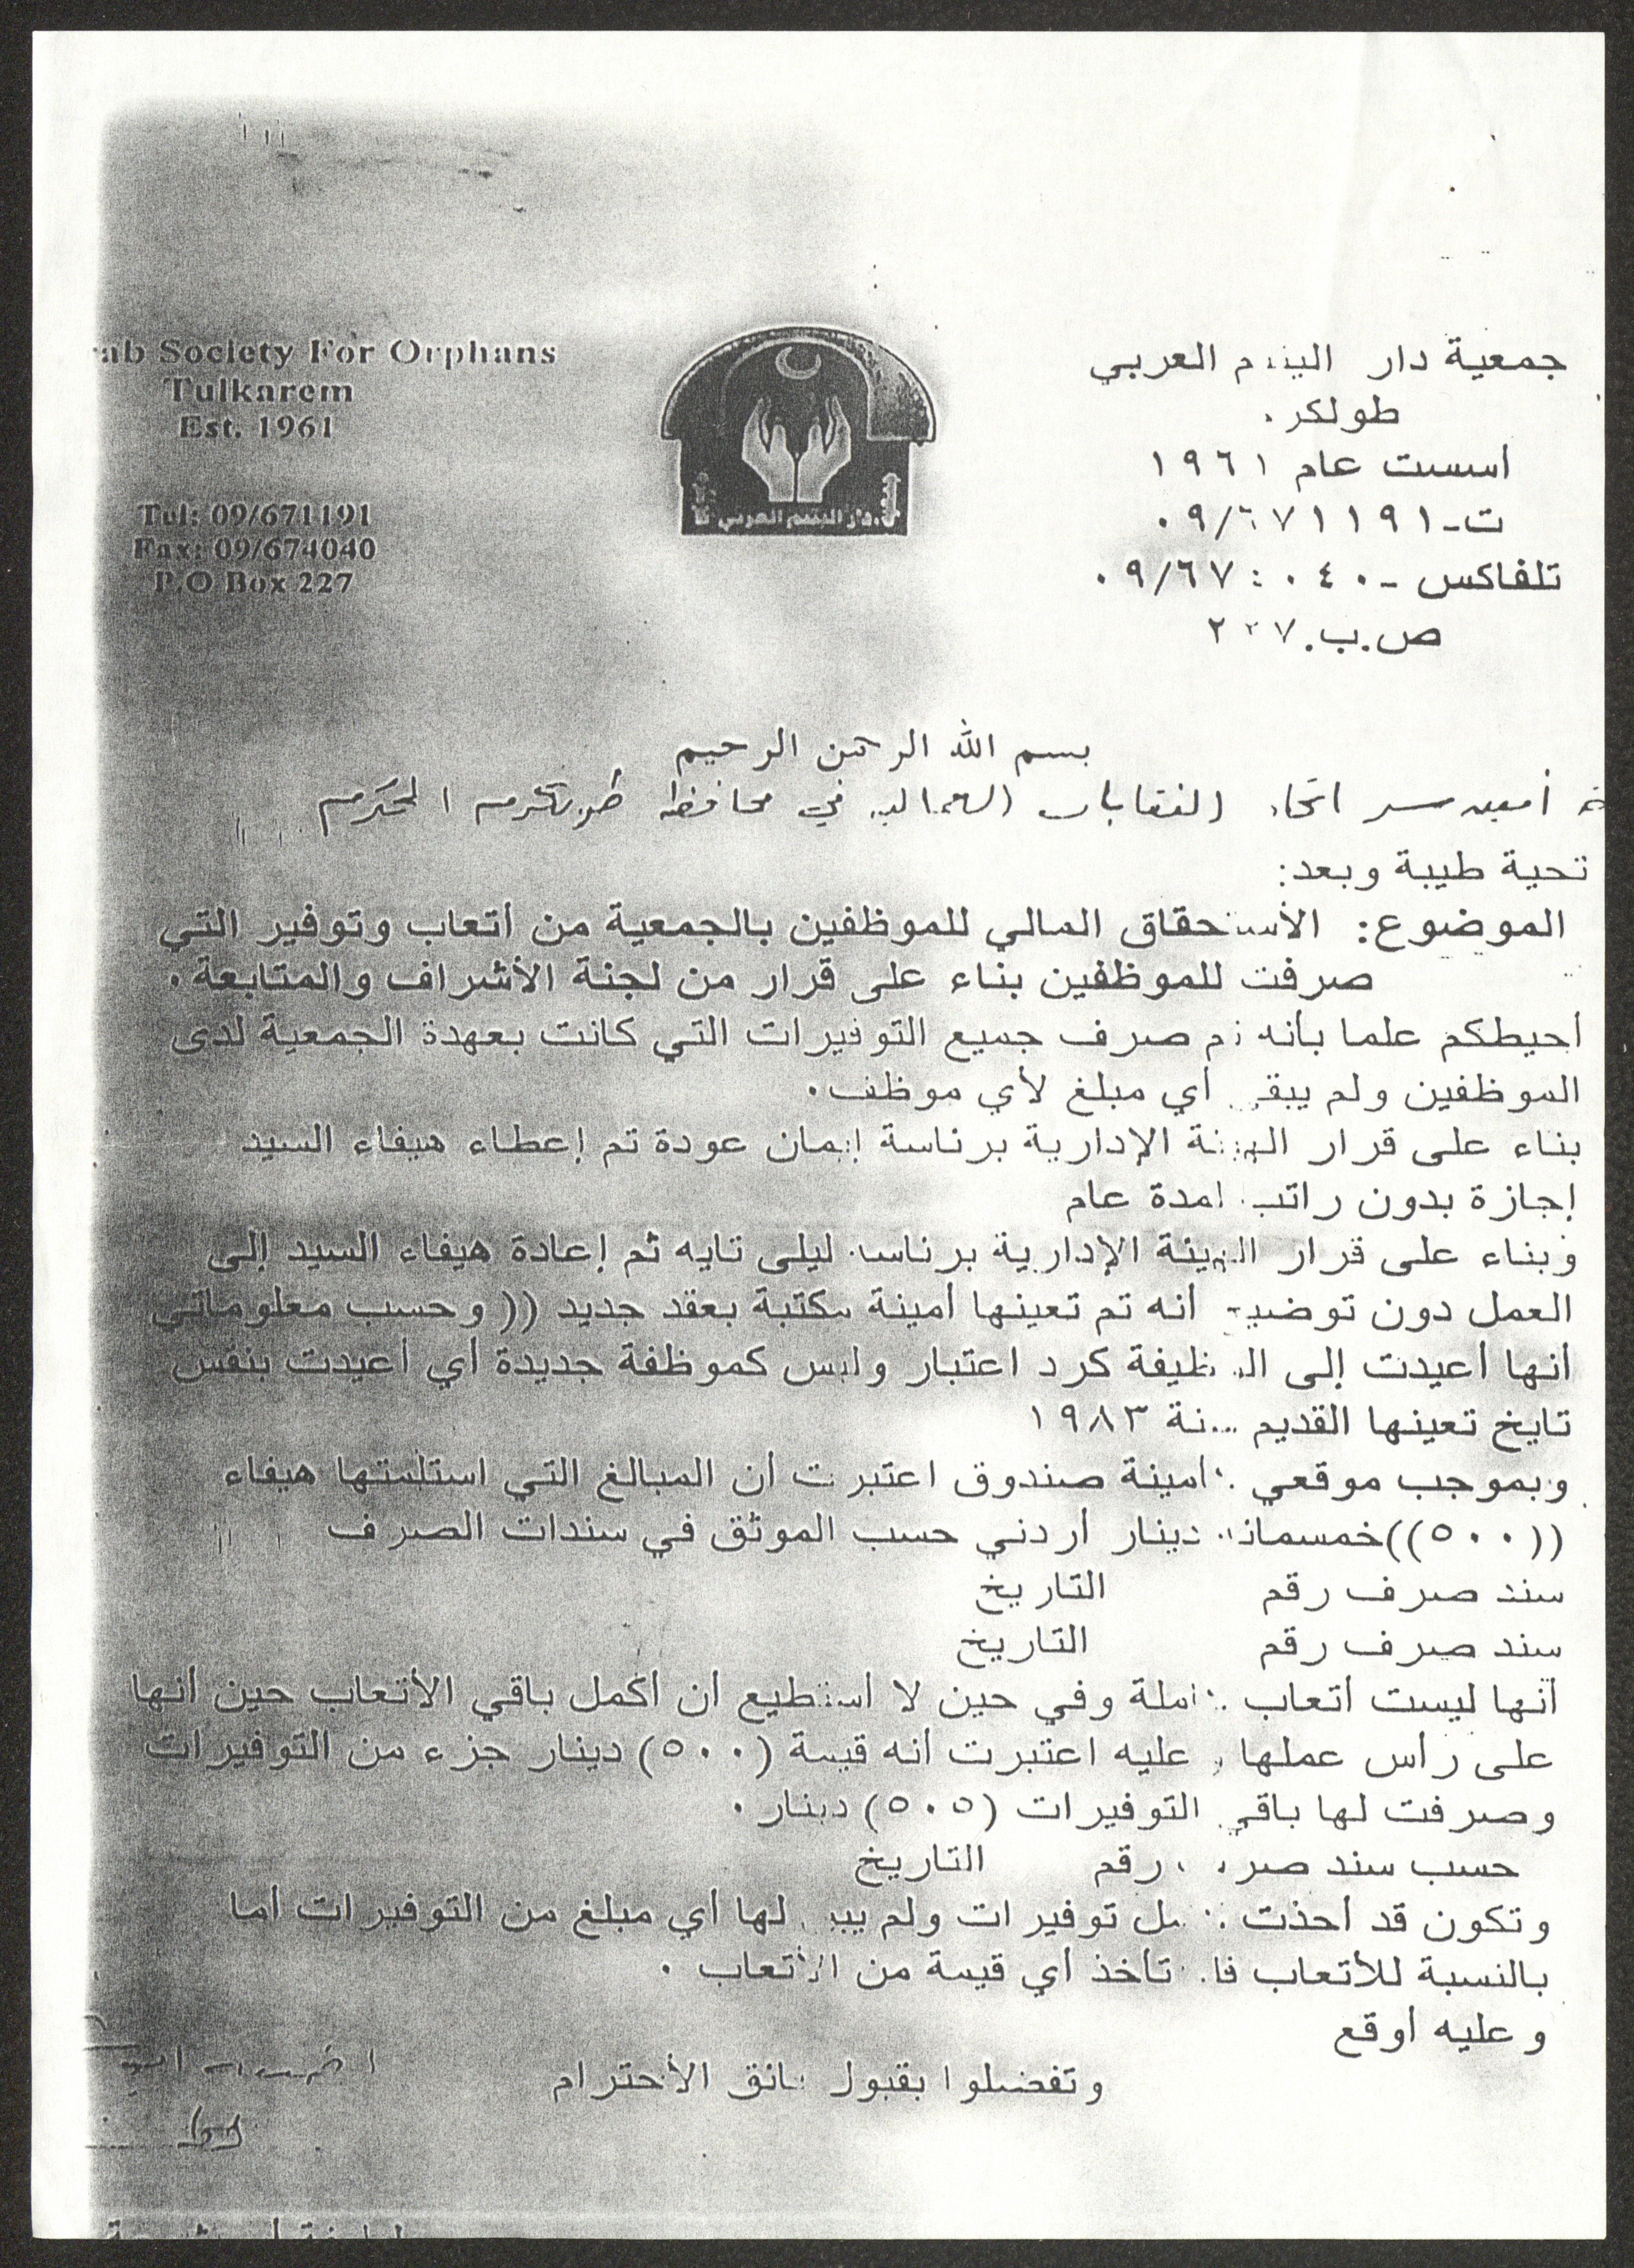 جمعية دار اليتيم العربي
طولكرم
أسست عام ١٩٦١
ت-٠٩/٦٧١١٩١
تلفاكس -٠٩/٦٧٤٠٤٠
ص.ب.٢٢٧
Society For Orphans
Tulkarem
Est. 1961
Tel: 09/671191
Fax: 09/674040
P.O Box 227
دار اليتيم العربي
بسم الله الرحمن الرحيم
أمين سر اتحاد النقابات العمالية في محافظة طولكرم المحترم
تحية طيبة وبعد:
الموضوع: الأستحقاق المالي للموظفين بالجمعية من أتعاب وتوفير التي
صرفت للموظفين بناء على قرار من لجنة الأشراف والمتابعة.
أحيطكم علما بأنه تم صرف جميع التوفيرات التي كانت بعهدة الجمعية لدى
الموظفين ولم يبقى أي مبلغ لأي موظف.
بناء على قرار الهيئة الإدارية برئاسة إيمان عودة تم إعطاء هيفاء السيد
إجازة بدون راتب لمدة عام
وبناء على قرار الهيئة الإدارية برئاسة ليلى تايه ثم إعادة هيفاء السيد إلى
العمل دون توضيح أنه تم تعينها أمينة مكتبة بعقد جديد (( وحسب معلوماتي
أنها أعيدت إلى الوظيفة كرد اعتبار وليس كموظفة جديدة أي أعيدت بنفس
تايخ تعينها القديم سنة ١٩٨٣
وبموجب موقعي كأمينة صندوق اعتبرت أن المبالغ التي استلمتها هيفاء
((٥٠٠))خمسمائة دينار أردني حسب الموثق في سندات الصرف
سند صرف رقم التاريخ
سند صرف رقم التاريخ
أنها ليست أتعاب كاملة وفي حين لا أستطيع أن أكمل باقي الأتعاب حين أنها
على رأس عملها وعليه اعتبرت أنه قيمة (٥٠٠) دينار جزء من التوفيرات
وصرفت لها باقي التوفيرات (٥٠٥) دينار.
حسب سند صرف رقم التاريخ
وتكون قد أخذت كامل توفيرات ولم يبق لها أي مبلغ من التوفيرات أما
بالنسبة للأتعاب فلم تأخذ أي قيمة من الأتعاب.
وعليه أوقع
وتفضلوا بقبول فائق الأحترام